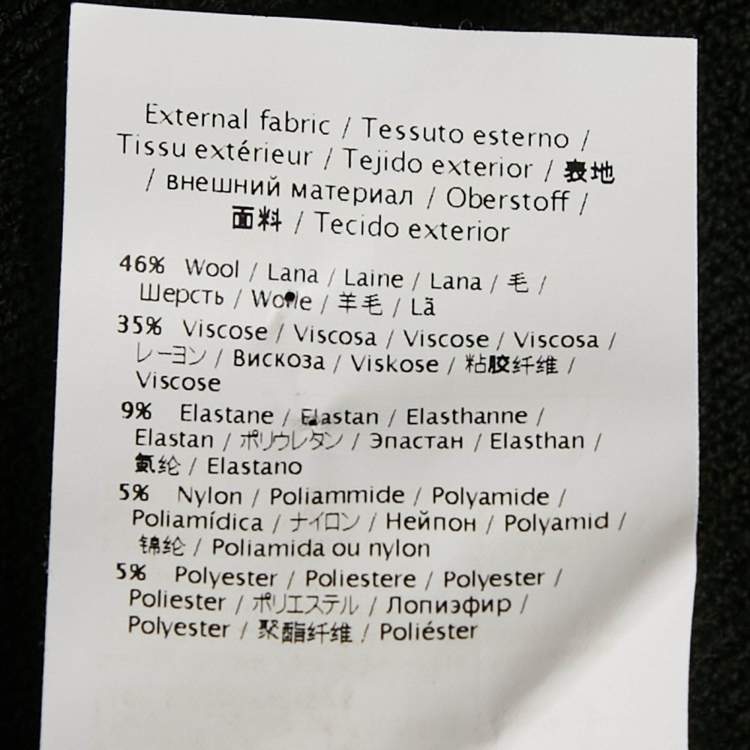 External fabric / Tessuto esterno /
Tissu extérieur / Tejido exterior / 表地
/ внешний материал / Oberstoff /
面料 / Tecido exterior
46% Wool / Lana / Laine / Lana / 毛 /
Шерсть / Wolle / 羊毛 / Lã
35% Viscose / Viscosa / Viscose / Viscosa /
レーヨン / Вискоза / Viskose / 粘胶纤维 /
Viscose
9% Elastane / Elastan / Elasthanne /
Elastan / ポリウレタン / Эпастан / Elasthan /
氨纶 / Elastano
5% Nylon / Poliammide / Polyamide /
Poliamídica / ナイロン / Нейпон / Polyamid /
锦纶 / Poliamida ou nylon
5% Polyester / Poliestere / Polyester /
Poliester / ポリエステル / Лопиэфир /
Polyester / 聚酯纤维 / Poliéster